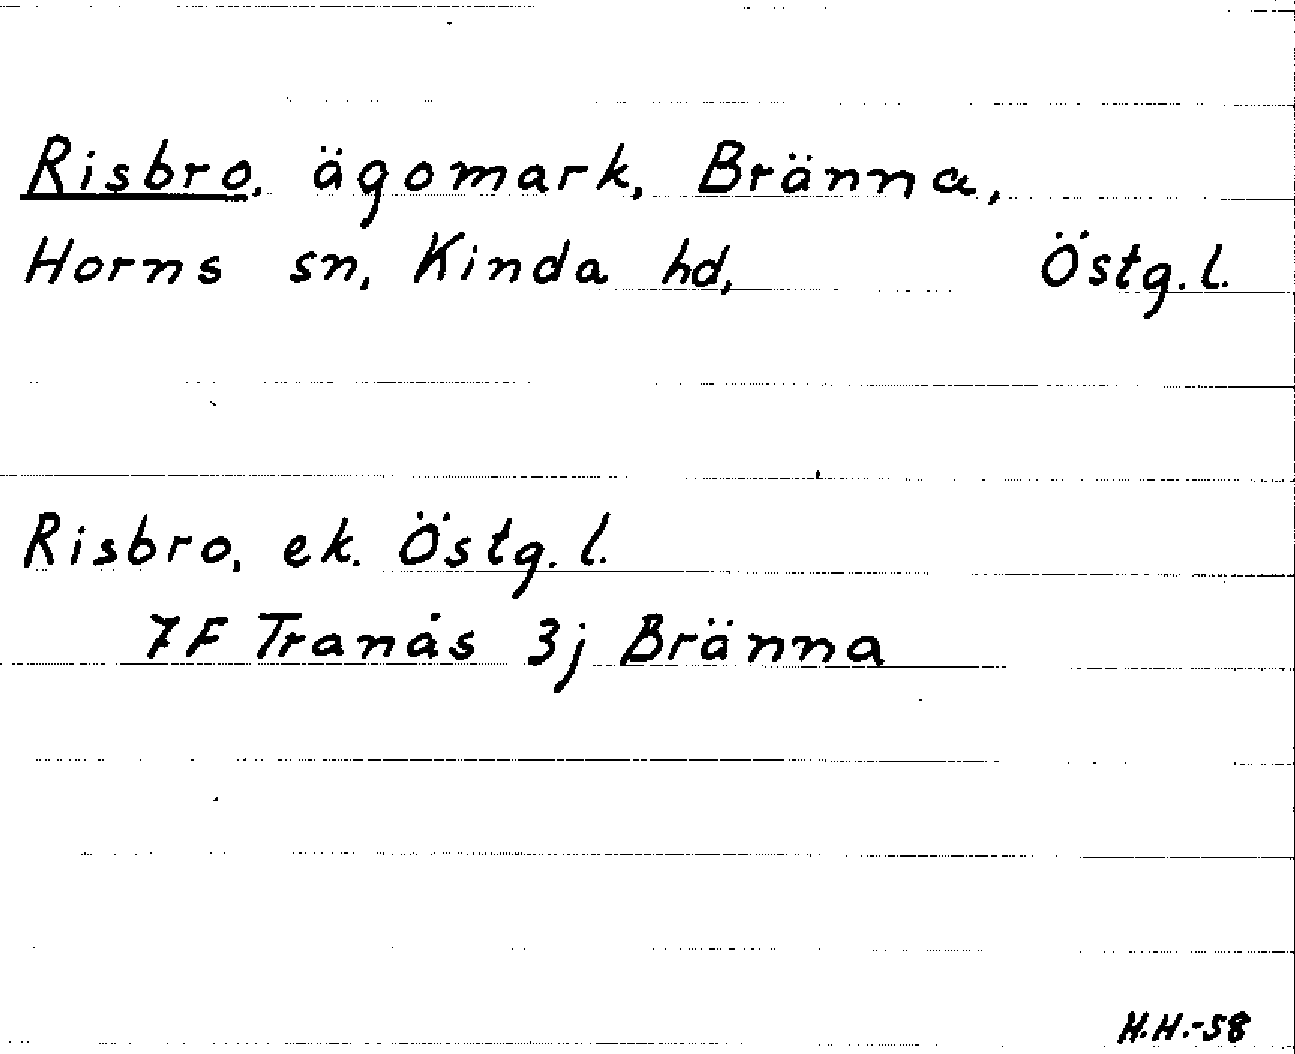 Risbro, ägomark, Bränna,
Horns sn, Kinda hd, Östg. l.
Risbro, ek. Östg. l.
7F Tranås 3j Bränna
H.H.-58